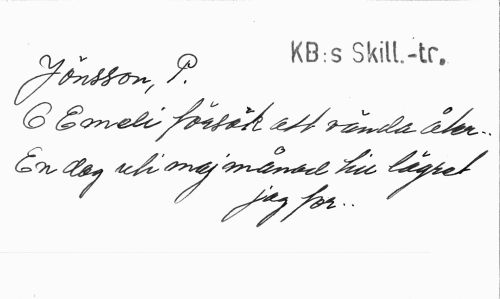 KB:s Skill.-tr.
Jönsson, P.
O Emeli försök att vända åter..
En dag uti maj månad till lägret
jag for..